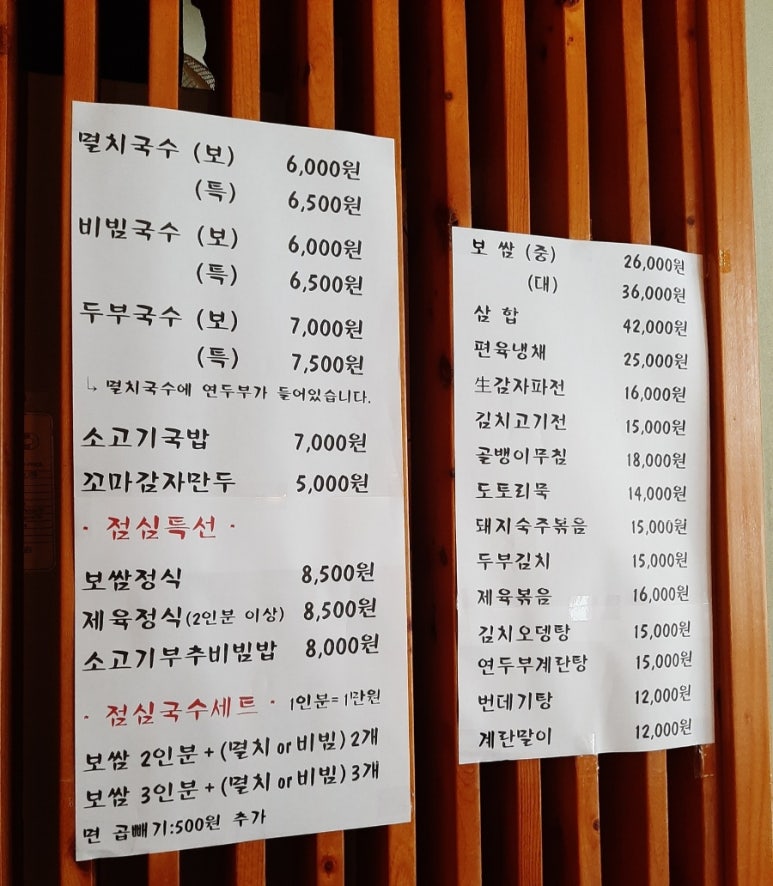 멸치국수 (보) 6,000원
(특) 6,500원
비빔국수 (보) 6,000원
(특) 6,500원
두부국수 (보) 7,000원
(특) 7,500원
↳ 멸치국수에 연두부가 들어있습니다.
소고기국밥 7,000원
꼬마감자만두 5,000원
· 점심특선 ·
보쌈정식 8,500원
제육정식(2인분 이상) 8,500원
소고기부추비빔밥 8,000원
· 점심국수세트 · 1인분=1만원
보쌈 2인분+(멸치 or 비빔) 2개
보쌈 3인분+(멸치 or 비빔) 3개
면 곱빼기:500원 추가
보 쌈 (중) 26,000원
(대) 36,000원
삼 합 42,000원
편육냉채 25,000원
生감자파전 16,000원
김치고기전 15,000원
골뱅이무침 18,000원
도토리묵 14,000원
돼지숙주볶음 15,000원
두부김치 15,000원
제육볶음 16,000원
김치오뎅탕 15,000원
연두부계란탕 15,000원
번데기탕 12,000원
계란말이 12,000원